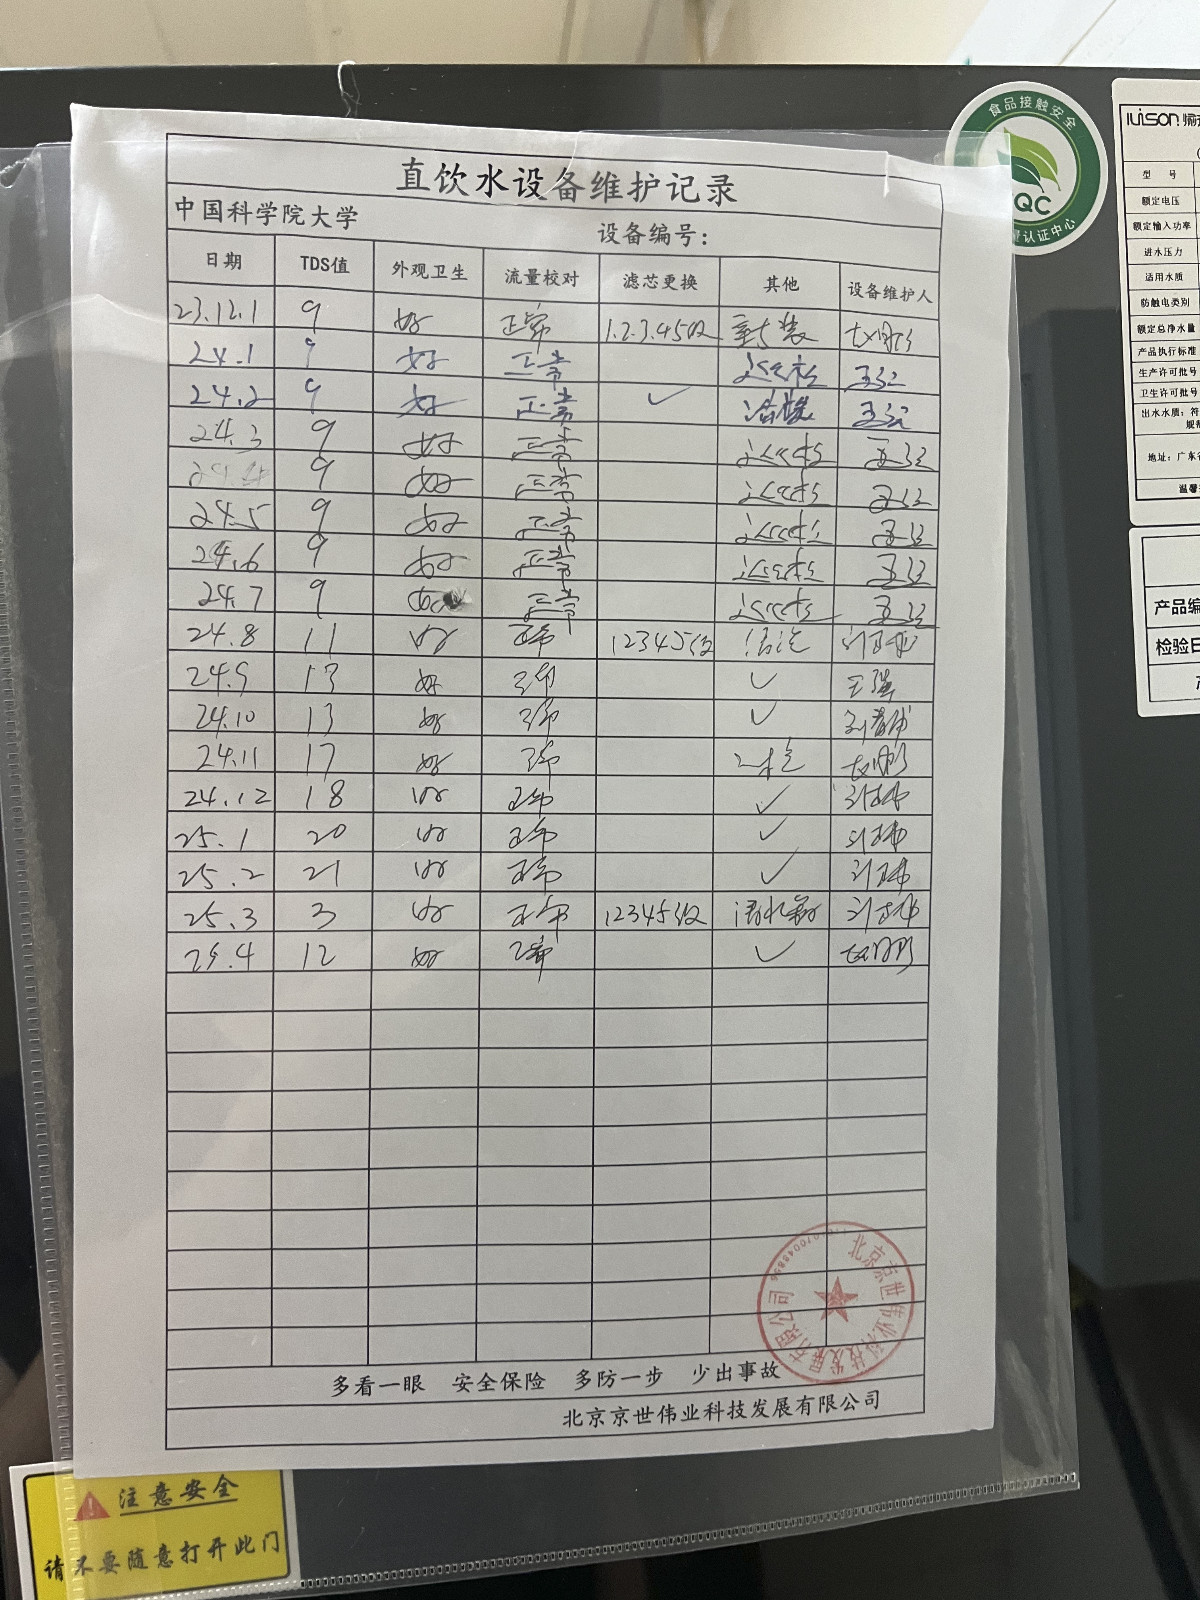 直饮水设备维护记录
中国科学院大学 设备编号：
日期 TDS值 外观卫生 流量校对 滤芯更换 其他 设备维护人
23.12.1 9 好 正常 1.2.3.4.5级
24.1 9 好 正常 巡检
24.2 9 好 正常 ✓
24.3 9 好 正常 巡检
24.4 9 好 正常 巡检
24.5 9 好 正常 巡检
24.6 9 好 正常 巡检
24.7 9 好 正常 巡检
24.8 11 好 正常 12345级
24.9 13 好 正常 ✓ 王强
24.10 13 好 正常 ✓
24.11 17 好 正常
24.12 18 好 正常 ✓
25.1 20 好 正常 ✓
25.2 21 好 正常 ✓
25.3 3 好 正常 12345级
25.4 12 好 正常 ✓
多看一眼 安全保险 多防一步 少出事故
北京京世伟业科技发展有限公司
北京京世伟业科技发展有限公司
注意安全
请不要随意打开此门
食品接触安全
QC
认证中心
型 号
额定电压
额定输入功率
进水压力
适用水质
防触电类别
额定总净水量
产品执行标准
生产许可批号
卫生许可批号
出水水质：符
地址：广东
产品编
检验日